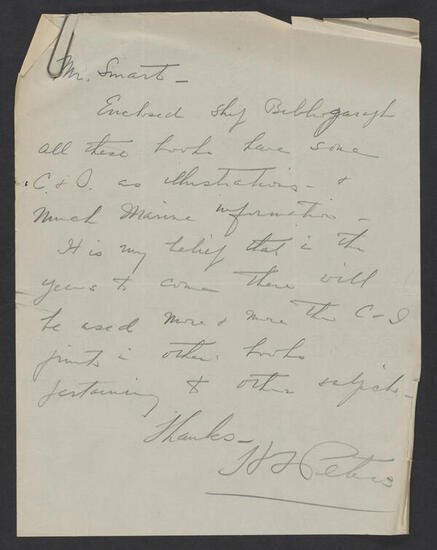 Mr. Smart -
Enclosed ship Bibliography
all these books have some
C & I. as illustrations - &
much Marine information -
It is my belief that in the
years to come there will
be used more & more the C & I
prints in other books
pertaining to other subjects -
Thanks -
H T Peters